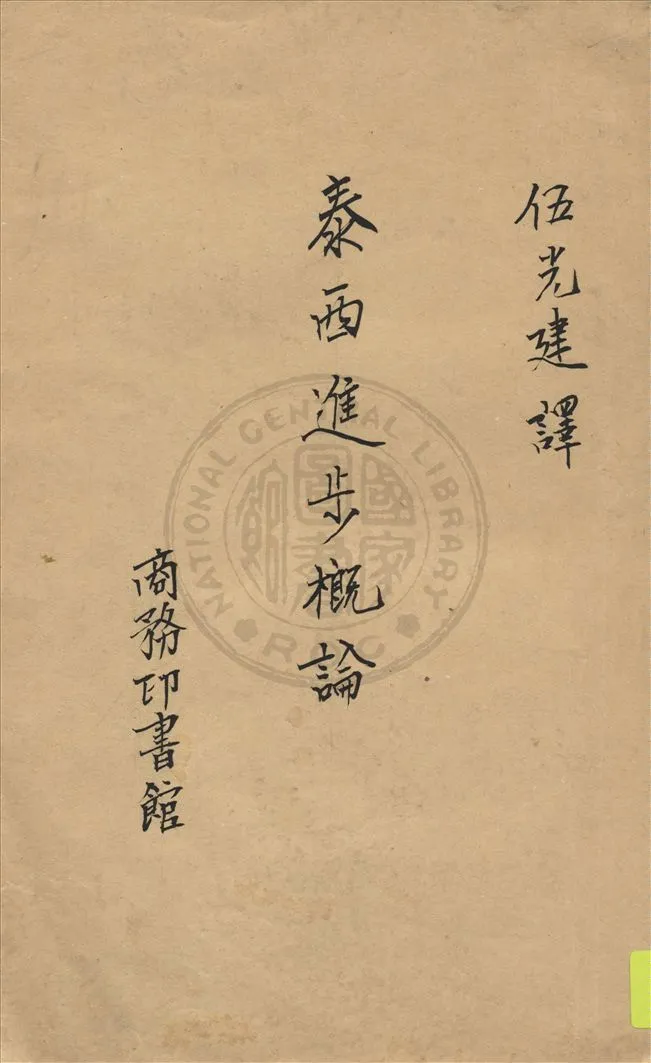 伍光建譯
泰西進步概論
商務印書館
NATIONAL CENTRAL LIBRARY
R.O.C
國家圖書館